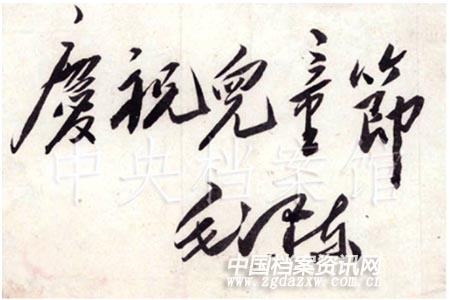 慶祝兒童節
毛澤东
中央档案馆
中国档案资讯网
www.zgdazxw.com.cn